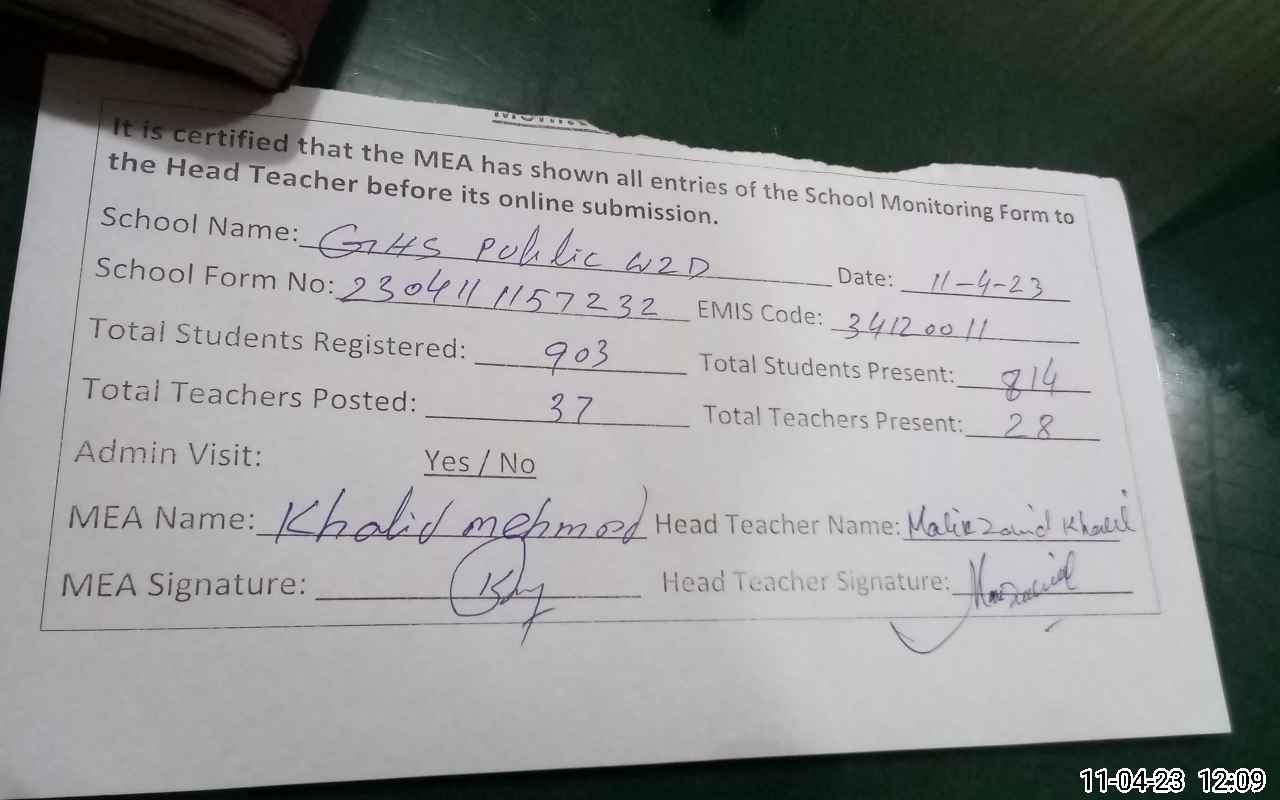 It is certified that the MEA has shown all entries of the School Monitoring Form to
the Head Teacher before its online submission.
School Name: GHS Public WZD Date: 11-4-23
School Form No: 2304111157232 EMIS Code: 34120011
Total Students Registered: 903 Total Students Present: 814
Total Teachers Posted: 37 Total Teachers Present: 28
Admin Visit: Yes / No
MEA Name: Khalid mehmod Head Teacher Name: Malik Zavid Khalil
MEA Signature: Head Teacher Signature:
11-04-23 12:09